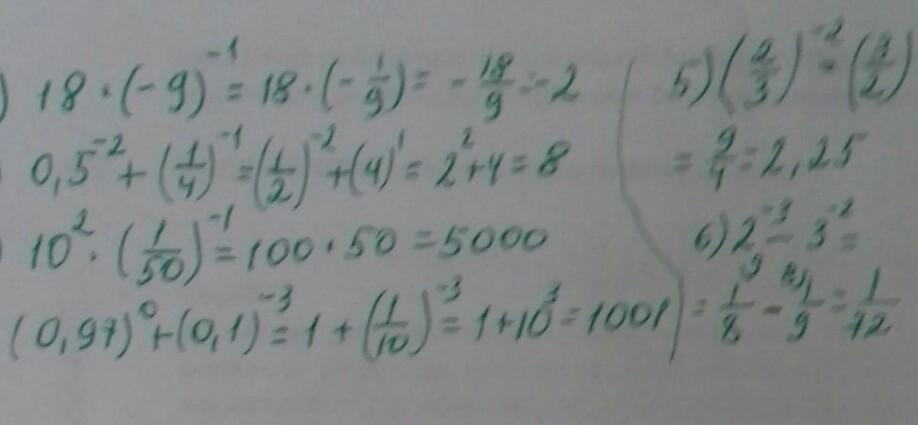 ) 18 · (-9)^-1 = 18 · (-1/9) = -18/9 = -2
0,5^-2 + (1/4)^-1 = (1/2)^-2 + (4)^1 = 2^2 + 4 = 8
) 10^2 · (1/50)^-1 = 100 · 50 = 5000
(0,97)^0 + (0,1)^-3 = 1 + (1/10)^-3 = 1 + 10^3 = 1001
5) (2/3)^-2 = (3/2)
= 9/4 = 2,25
6) 2^-3 - 3^-2 =
= 1/8 - 1/9 = 1/72